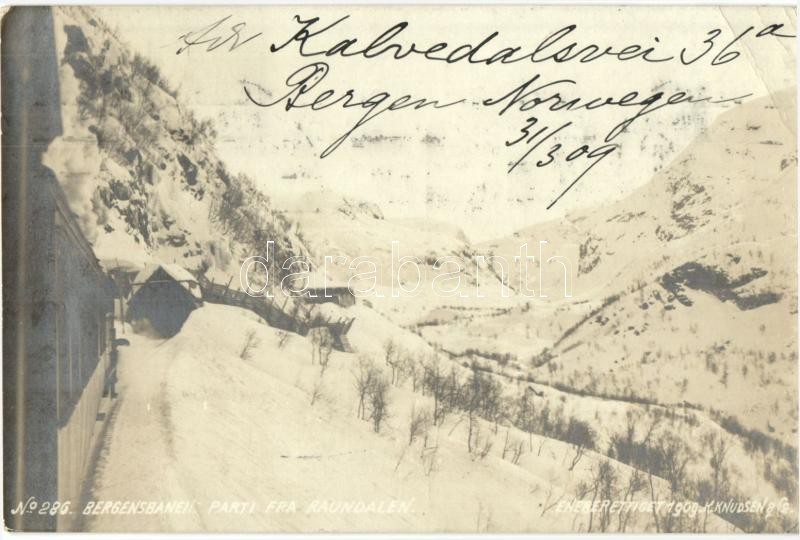 Kalvedalsvei 36a
Bergen Norwegen
31/3 09
darabanth
No 286. BERGENSBANEN. PARTI FRA RAUNDALEN.
ENEBERETTIGET 1909. K. KNUDSEN & Co.